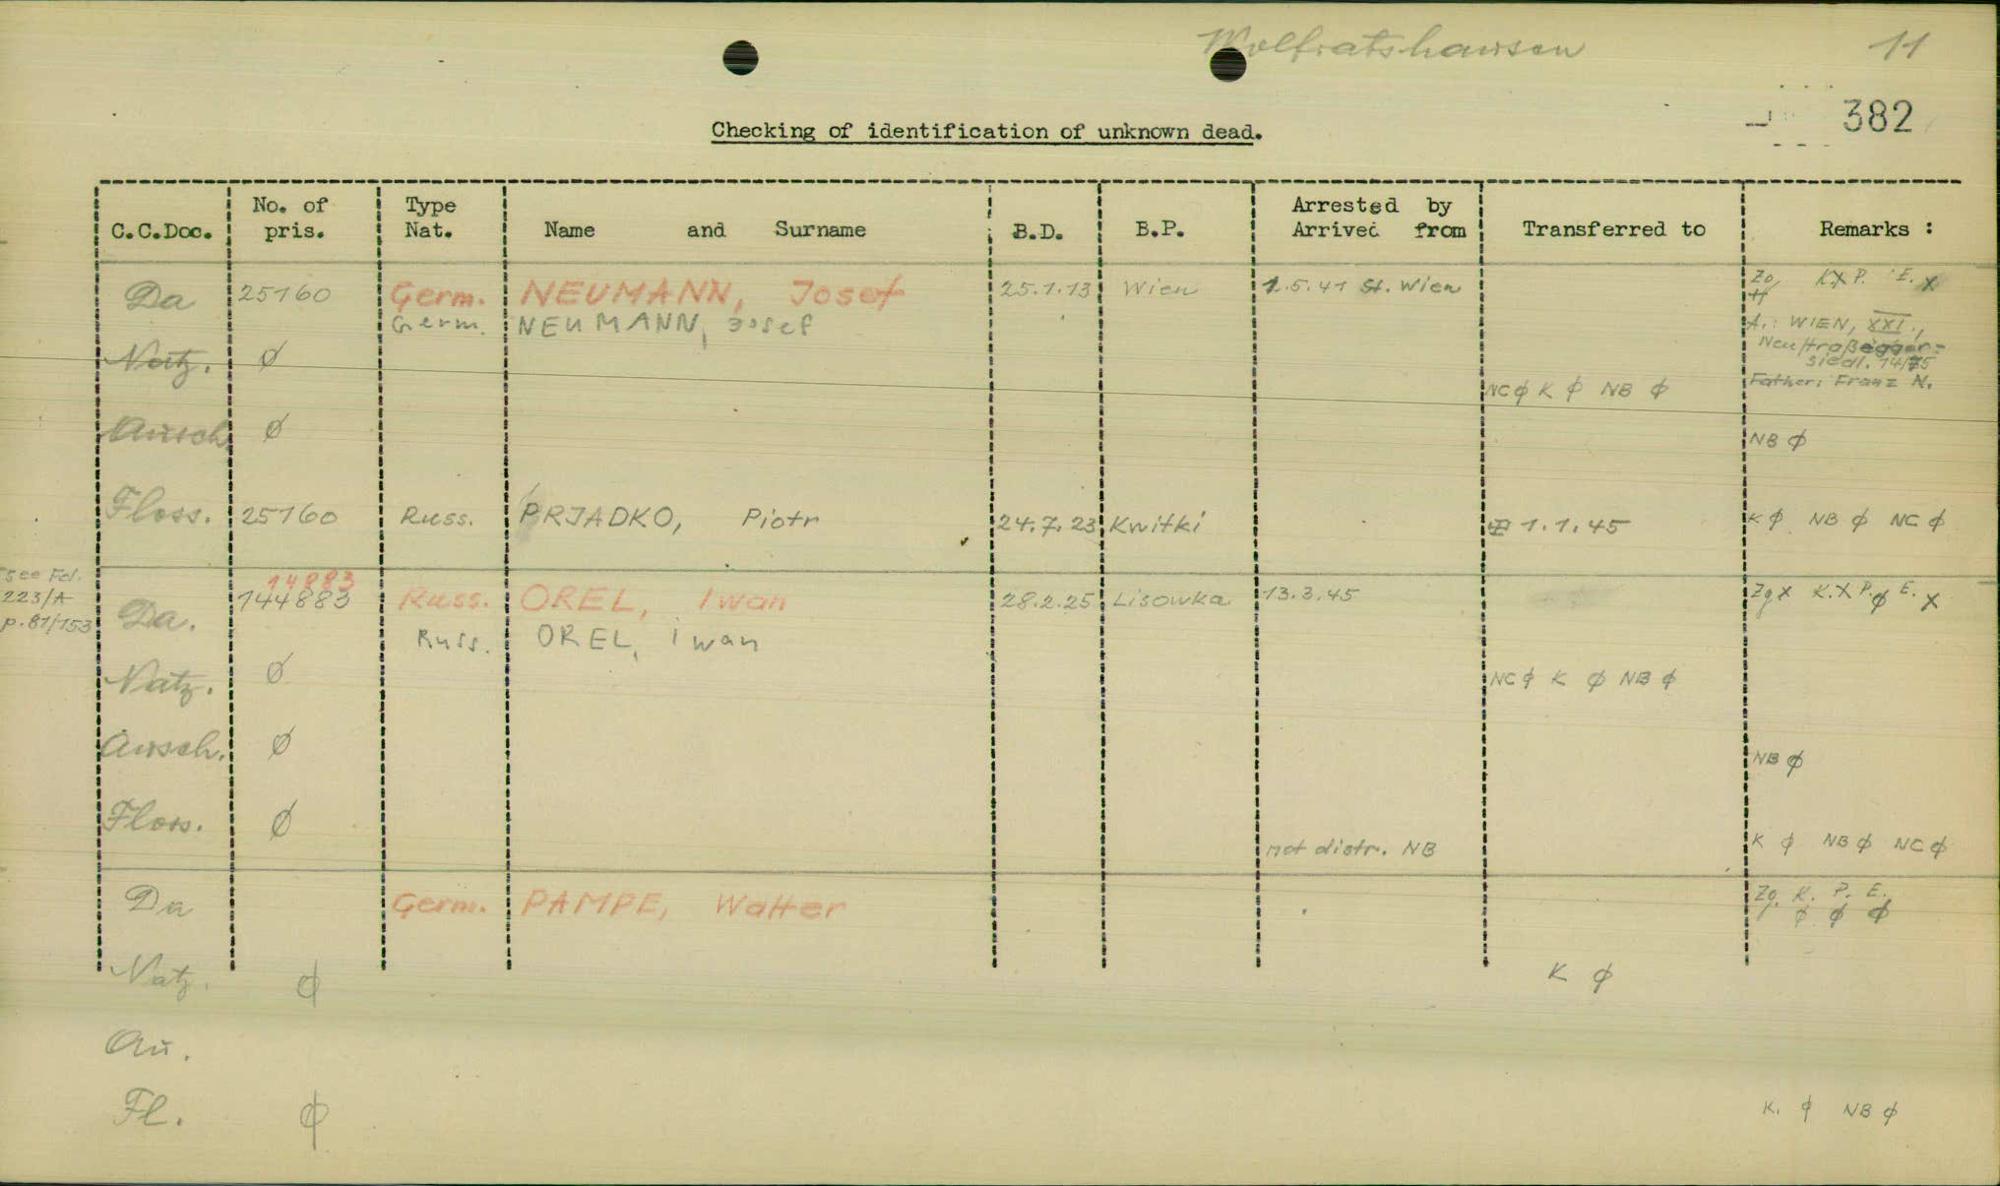 Wolfratshausen 11
382
Checking of identification of unknown dead.
C.C.Doc. No. of pris. Type Nat. Name and Surname B.D. B.P. Arrested by Arrived from Transferred to Remarks :
Da 25160 Germ. NEUMANN, Josef 25.1.13 Wien 1.5.41 St. Wien K X P. E. X
Germ. NEUMANN, Josef A.: WIEN, XXI.,
Natz. Ø siedl. 14/75
Father: Franz N.
NC Ø K Ø NB Ø
Ausch Ø NB Ø
Floss. 25160 Russ. PRJADKO, Piotr 24.7.23 Kwitki 1.1.45 K Ø NB Ø NC Ø
see Fol.
223/A
p.81/153
14883
Da. 144883 Russ. OREL, Iwan 28.2.25 Lisowka 13.3.45 Zg X K.X P. Ø E. X
Russ. OREL, iwan
Natz. Ø NC Ø K Ø NB Ø
Ausch. Ø NB Ø
Floss. Ø not distr. NB K Ø NB Ø NC Ø
Da Germ. PAMPE, Walter Zg. K. P. E.
Ø Ø Ø
Natz. Ø K Ø
Au.
Fl. Ø K. Ø NB Ø